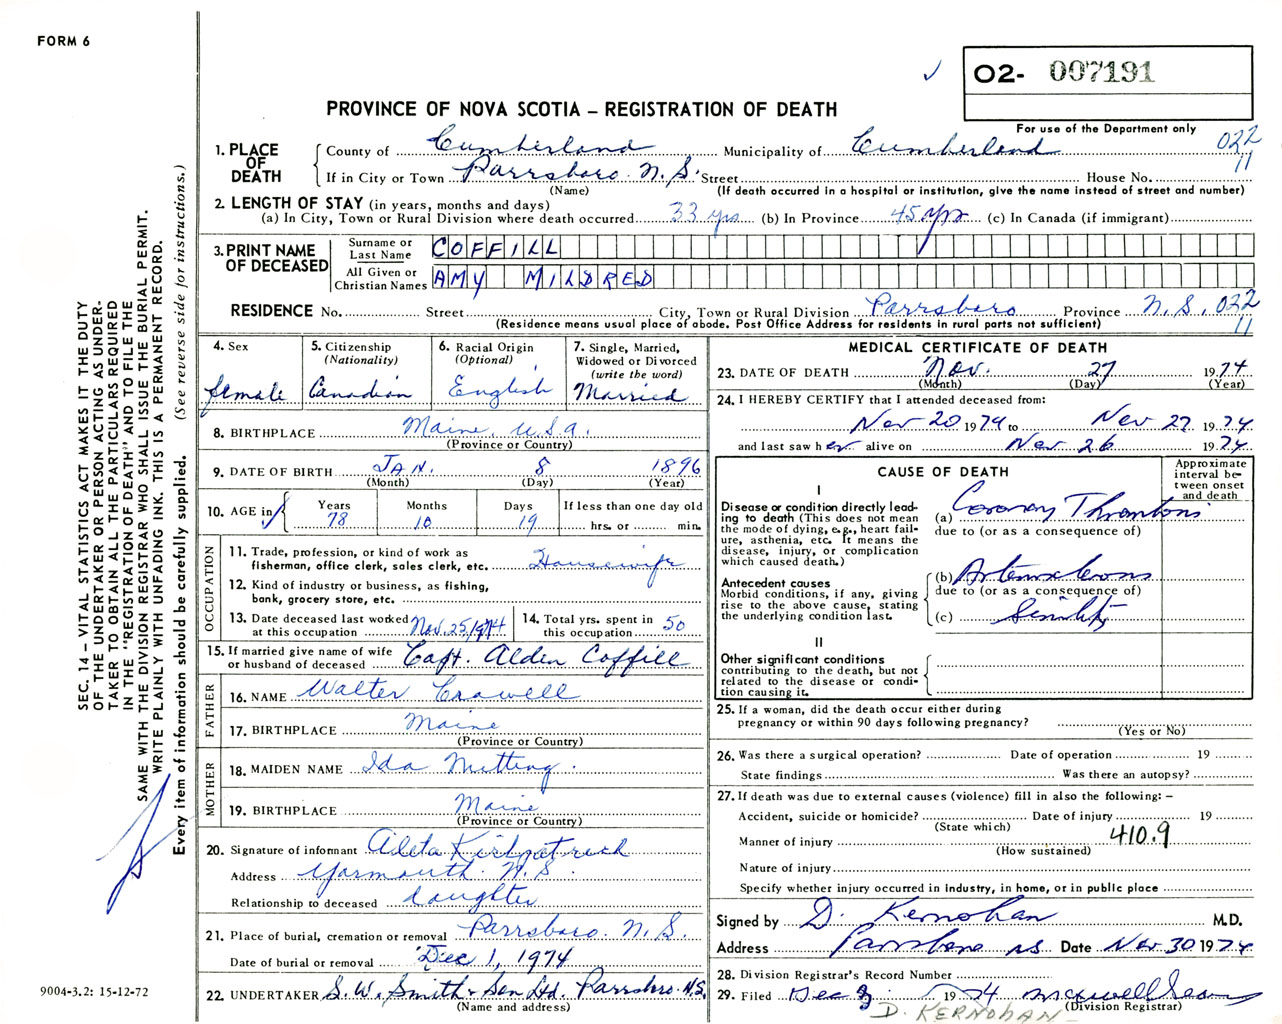 FORM 6
✓ 02- 007191
PROVINCE OF NOVA SCOTIA – REGISTRATION OF DEATH
For use of the Department only
1. PLACE OF DEATH
County of Cumberland Municipality of Cumberland 022
11
If in City or Town Parrsboro N.S. Street House No.
(Name) (If death occurred in a hospital or institution, give the name instead of street and number)
2. LENGTH OF STAY (in years, months and days)
(a) In City, Town or Rural Division where death occurred 33 yrs (b) In Province 45 yrs (c) In Canada (if immigrant)
3. PRINT NAME OF DECEASED
Surname or Last Name COFFILL
All Given or Christian Names AMY MILDRED
RESIDENCE No. Street City, Town or Rural Division Parrsboro Province N.S. 022
(Residence means usual place of abode. Post Office Address for residents in rural parts not sufficient) 11
4. Sex
female
5. Citizenship
(Nationality)
Canadian
6. Racial Origin
(Optional)
English
7. Single, Married,
Widowed or Divorced
(write the word)
Married
8. BIRTHPLACE Maine, U.S.A.
(Province or Country)
9. DATE OF BIRTH JAN. 8 1896
(Month) (Day) (Year)
10. AGE in
Years Months Days If less than one day old
78 10 19 hrs. or min.
OCCUPATION
11. Trade, profession, or kind of work as
fisherman, office clerk, sales clerk, etc. Housewife
12. Kind of industry or business, as fishing,
bank, grocery store, etc.
13. Date deceased last worked
at this occupation Nov. 25/1974
14. Total yrs. spent in
this occupation 50
15. If married give name of wife
or husband of deceased Capt. Alden Coffill
FATHER
16. NAME Walter Crowell
17. BIRTHPLACE Maine
(Province or Country)
MOTHER
18. MAIDEN NAME Ida
19. BIRTHPLACE Maine
(Province or Country)
20. Signature of informant Adeta Kirkpatrick
Address Yarmouth N.S.
Relationship to deceased daughter
21. Place of burial, cremation or removal Parrsboro. N.S.
Date of burial or removal Dec 1, 1974
22. UNDERTAKER S.W. Smith & Son Ltd. Parrsboro N.S.
(Name and address)
MEDICAL CERTIFICATE OF DEATH
23. DATE OF DEATH Nov. 27 1974
(Month) (Day) (Year)
24. I HEREBY CERTIFY that I attended deceased from:
Nov 20 1974 to Nov 27 1974
and last saw her alive on Nov 26 1974
CAUSE OF DEATH
Approximate
interval be-
tween onset
and death
I
Disease or condition directly lead-
ing to death (This does not mean
the mode of dying, e.g., heart fail-
ure, asthenia, etc. It means the
disease, injury, or complication
which caused death.)
(a) Coronary Thrombosis
due to (or as a consequence of)
Antecedent causes
Morbid conditions, if any, giving
rise to the above cause, stating
the underlying condition last.
(b) Arteriosclerosis
due to (or as a consequence of)
(c) Senility
II
Other significant conditions
contributing to the death, but not
related to the disease or condi-
tion causing it.
25. If a woman, did the death occur either during
pregnancy or within 90 days following pregnancy?
(Yes or No)
26. Was there a surgical operation? Date of operation 19
State findings Was there an autopsy?
27. If death was due to external causes (violence) fill in also the following: –
Accident, suicide or homicide? Date of injury 19
(State which)
Manner of injury 410.9
(How sustained)
Nature of injury
Specify whether injury occurred in industry, in home, or in public place
Signed by D. Kernohan M.D.
Address Parrsboro NS Date Nov 30 1974
28. Division Registrar's Record Number
29. Filed Dec 3 1974
(Division Registrar)
D. KERNOHAN
SEC. 14 – VITAL STATISTICS ACT MAKES IT THE DUTY
OF THE UNDERTAKER OR PERSON ACTING AS UNDER-
TAKER TO OBTAIN ALL THE PARTICULARS REQUIRED
IN THE "REGISTRATION OF DEATH" AND TO FILE THE
SAME WITH THE DIVISION REGISTRAR WHO SHALL ISSUE THE BURIAL PERMIT.
WRITE PLAINLY WITH UNFADING INK. THIS IS A PERMANENT RECORD.
Every item of information should be carefully supplied. (See reverse side for instructions.)
9004-3.2: 15-12-72